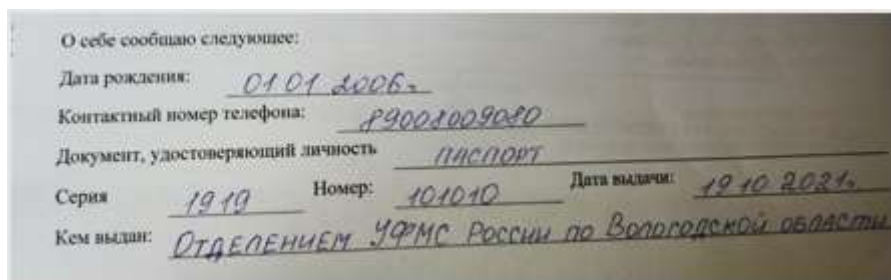 О себе сообщаю следующее:
Дата рождения: 01 01 2006г
Контактный номер телефона: 89008009080
Документ, удостоверяющий личность ПАСПОРТ
Серия 1919 Номер: 101010 Дата выдачи: 19 10 2021г
Кем выдан: ОТДЕЛЕНИЕМ УФМС РОССИИ ПО ВОЛОГОДСКОЙ ОБЛАСТИ